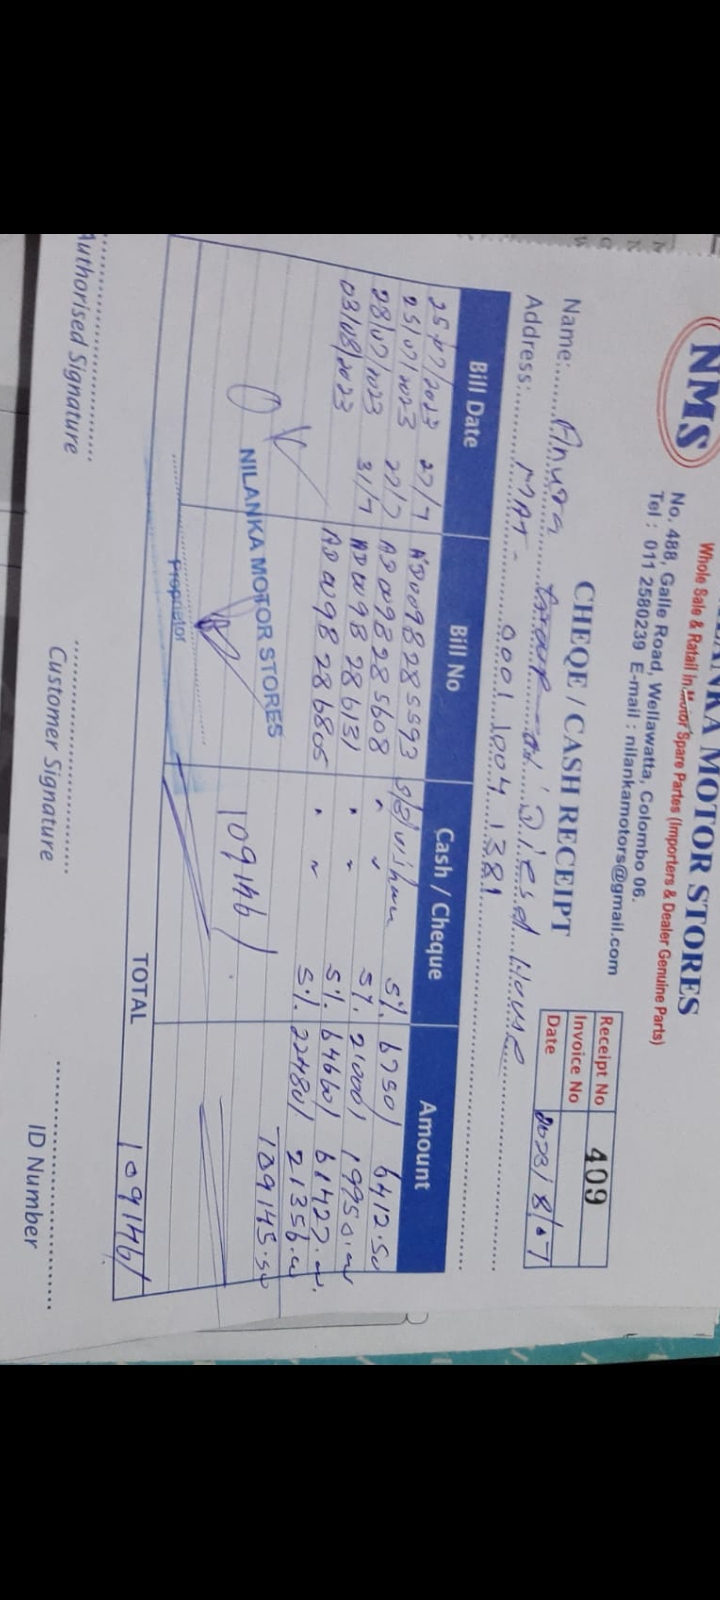 NMS
ANKA MOTOR STORES
Whole Sale & Ratail in Motor Spare Partes (Importers & Dealer Genuine Parts)
No. 488, Galle Road, Wellawatta, Colombo 06.
Tel : 011 2580239 E-mail : nilankamotors@gmail.com
CHEQE / CASH RECEIPT
Receipt No 409
Invoice No
Date 2023/8/07
Name: Anura Diesel House
Address: MAT - 0001 1004 1381
Bill Date Bill No Cash / Cheque Amount
25/07/2023 27/7 ADW098285593 5%. 6750/ 6412.50
25/07/2023 27/7 ADW098285608 " " 5%. 21000/ 19950.00
28/07/2023 31/7 ADW098286131 " " 5%. 64660/ 61427.00
03/08/2023 ADW098286805 " " 5%. 22480/ 21356.00
109145.50
OK
109146/
NILANKA MOTOR STORES
Proprietor
TOTAL 109146/
Authorised Signature Customer Signature ID Number